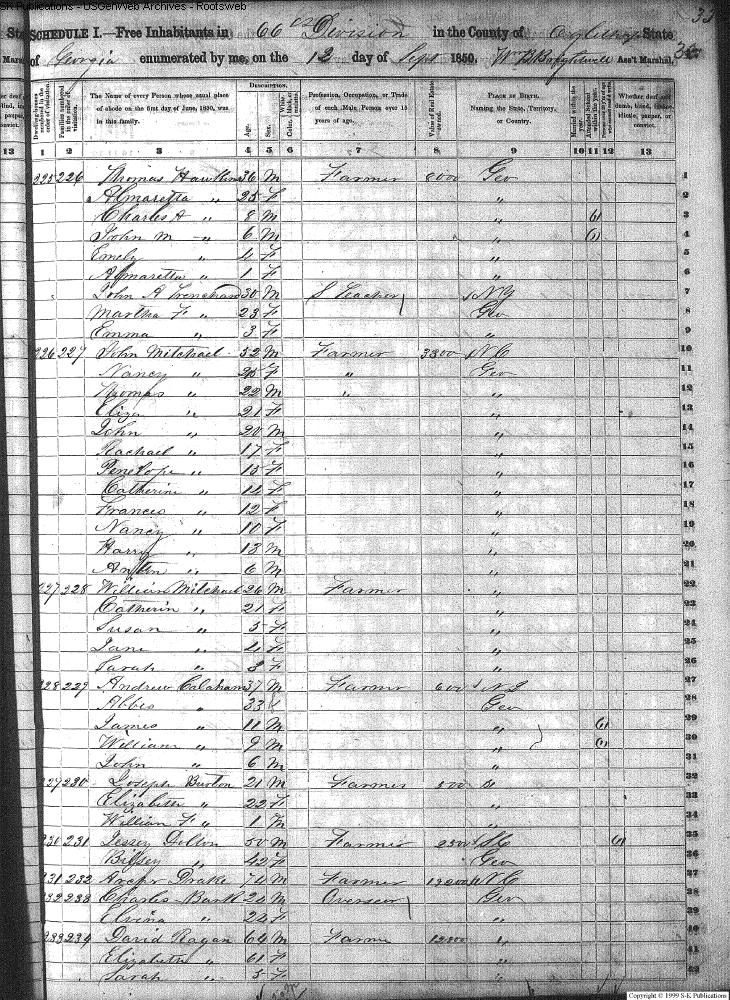 SK Publications - USGenWeb Archives - Rootsweb
SCHEDULE I.—Free Inhabitants in 66 Division in the County of State
of Georgia enumerated by me, on the 12 day of Sept 1850. Ass't Marshal.
DESCRIPTION.
The Name of every Person whose usual place of abode on the first day of June, 1850, was in this family.
Age.
Sex.
Profession, Occupation, or Trade of each Male Person over 15 years of age.
Value of Real Estate owned.
PLACE OF BIRTH.
Naming the State, Territory, or Country.
Whether deaf and dumb, blind, insane, idiotic, pauper, or convict.
13 1 2 3 4 5 6 7 8 9 10 11 12 13
225 226 Thomas Hawkins 36 M Farmer Geo 1
Almaretta " 25 F " 2
Charles A " 8 M " 1 3
John M " 6 M " 1 4
Emely " 4 F " 5
Almaretta " 1 F " 6
John A 30 M S Teacher N Y 7
Martha F " 23 F Geo 8
Emma " 3 F " 9
226 227 John Mitchael 52 M Farmer 3300 N C 10
Nancy " F " Geo 11
Thomas " 22 M " " 12
Eliza " 21 F " 13
John " 20 M " 14
Rachael " 17 F " 15
Penelope " 15 F " 16
Catherine " 14 F " 17
Frances " 12 F " 18
Nancy " 10 F " 19
Harry " 13 M " 20
" 6 M " 21
227 228 William Mitchael 26 M Farmer " 22
Catherin " 21 F " 23
Susan " 5 F " 24
Jane " 4 F " 25
Sarah " 3 F " 26
228 229 Andrew Calaham 37 M Farmer 600 27
" 33 Geo 28
James " 11 M " 1 29
William " 9 M " 1 30
John " 6 M " 31
229 230 Joseph Burton 21 M Farmer 500 " 32
Elizabeth " 22 F " 33
William F " 1 M " 34
230 231 Jessey Dolton 50 M Farmer 2500 S C 1 35
" 42 F Geo 36
231 232 Drake 74 M Farmer N C 37
232 233 Charles 24 M Overseer Geo 38
Elvina " 24 F " 39
233 234 David Ragan 64 M Farmer " 40
Elizabeth " 61 F " 41
Sarah " 5 F " 42
Copyright © 1999 S-K Publications